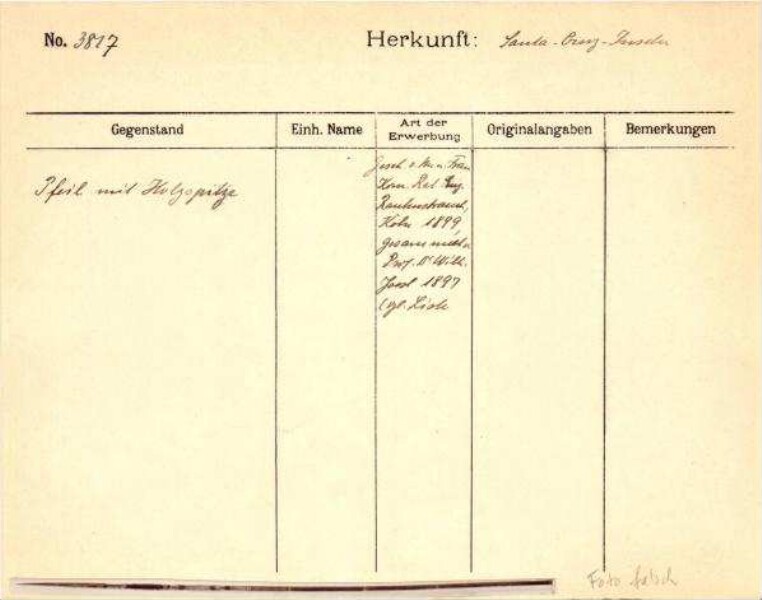 No. 3817 Herkunft: Santa-Cruz-Inseln
Gegenstand Einh. Name Art der Erwerbung Originalangaben Bemerkungen
Pfeil mit Holzspitze
Gesch. v. u. Frau
Kom. Rat Eug.
Rautenstrauch,
Köln 1899,
gesammelt v.
Prof. Dr Wilh.
Joest 1897
(vgl. Liste
Foto falsch